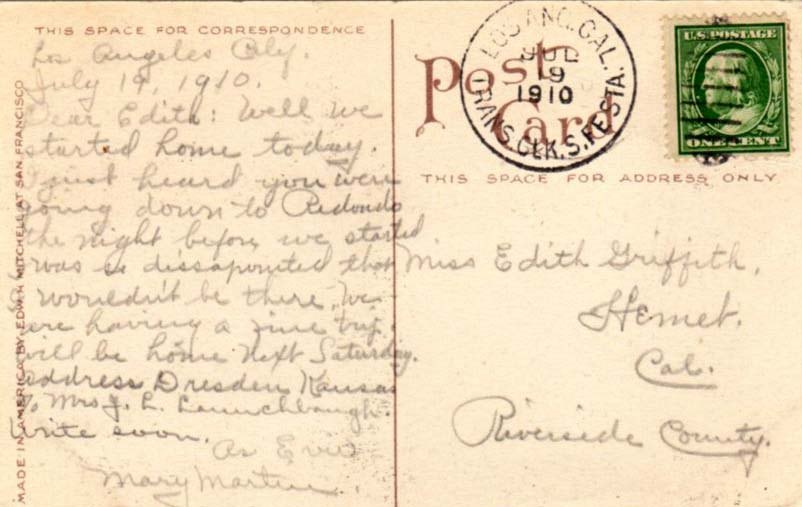 THIS SPACE FOR CORRESPONDENCE
Los Angeles Caly.
July 19, 1910.
Dear Edith: Well we
started home today.
I just heard you were
going down to Redondo
the night before we started
I was so dissapointed that
I wouldn't be there. We
are having a fine trip.
will be home next Saturday.
address Dresden Kansas
% Mrs J. L. Launchbaugh.
Write soon.
As Ever
Mary Martin.
MADE IN AMERICA BY EDW. H. MITCHELL AT SAN FRANCISCO
Post
Card
LOS ANG. CAL.
JUL
9
1910
TRANS. CLK. S. FE STA.
U.S. POSTAGE
ONE CENT
THIS SPACE FOR ADDRESS ONLY
Miss Edith Griffith,
Hemet.
Cal.
Riverside County.